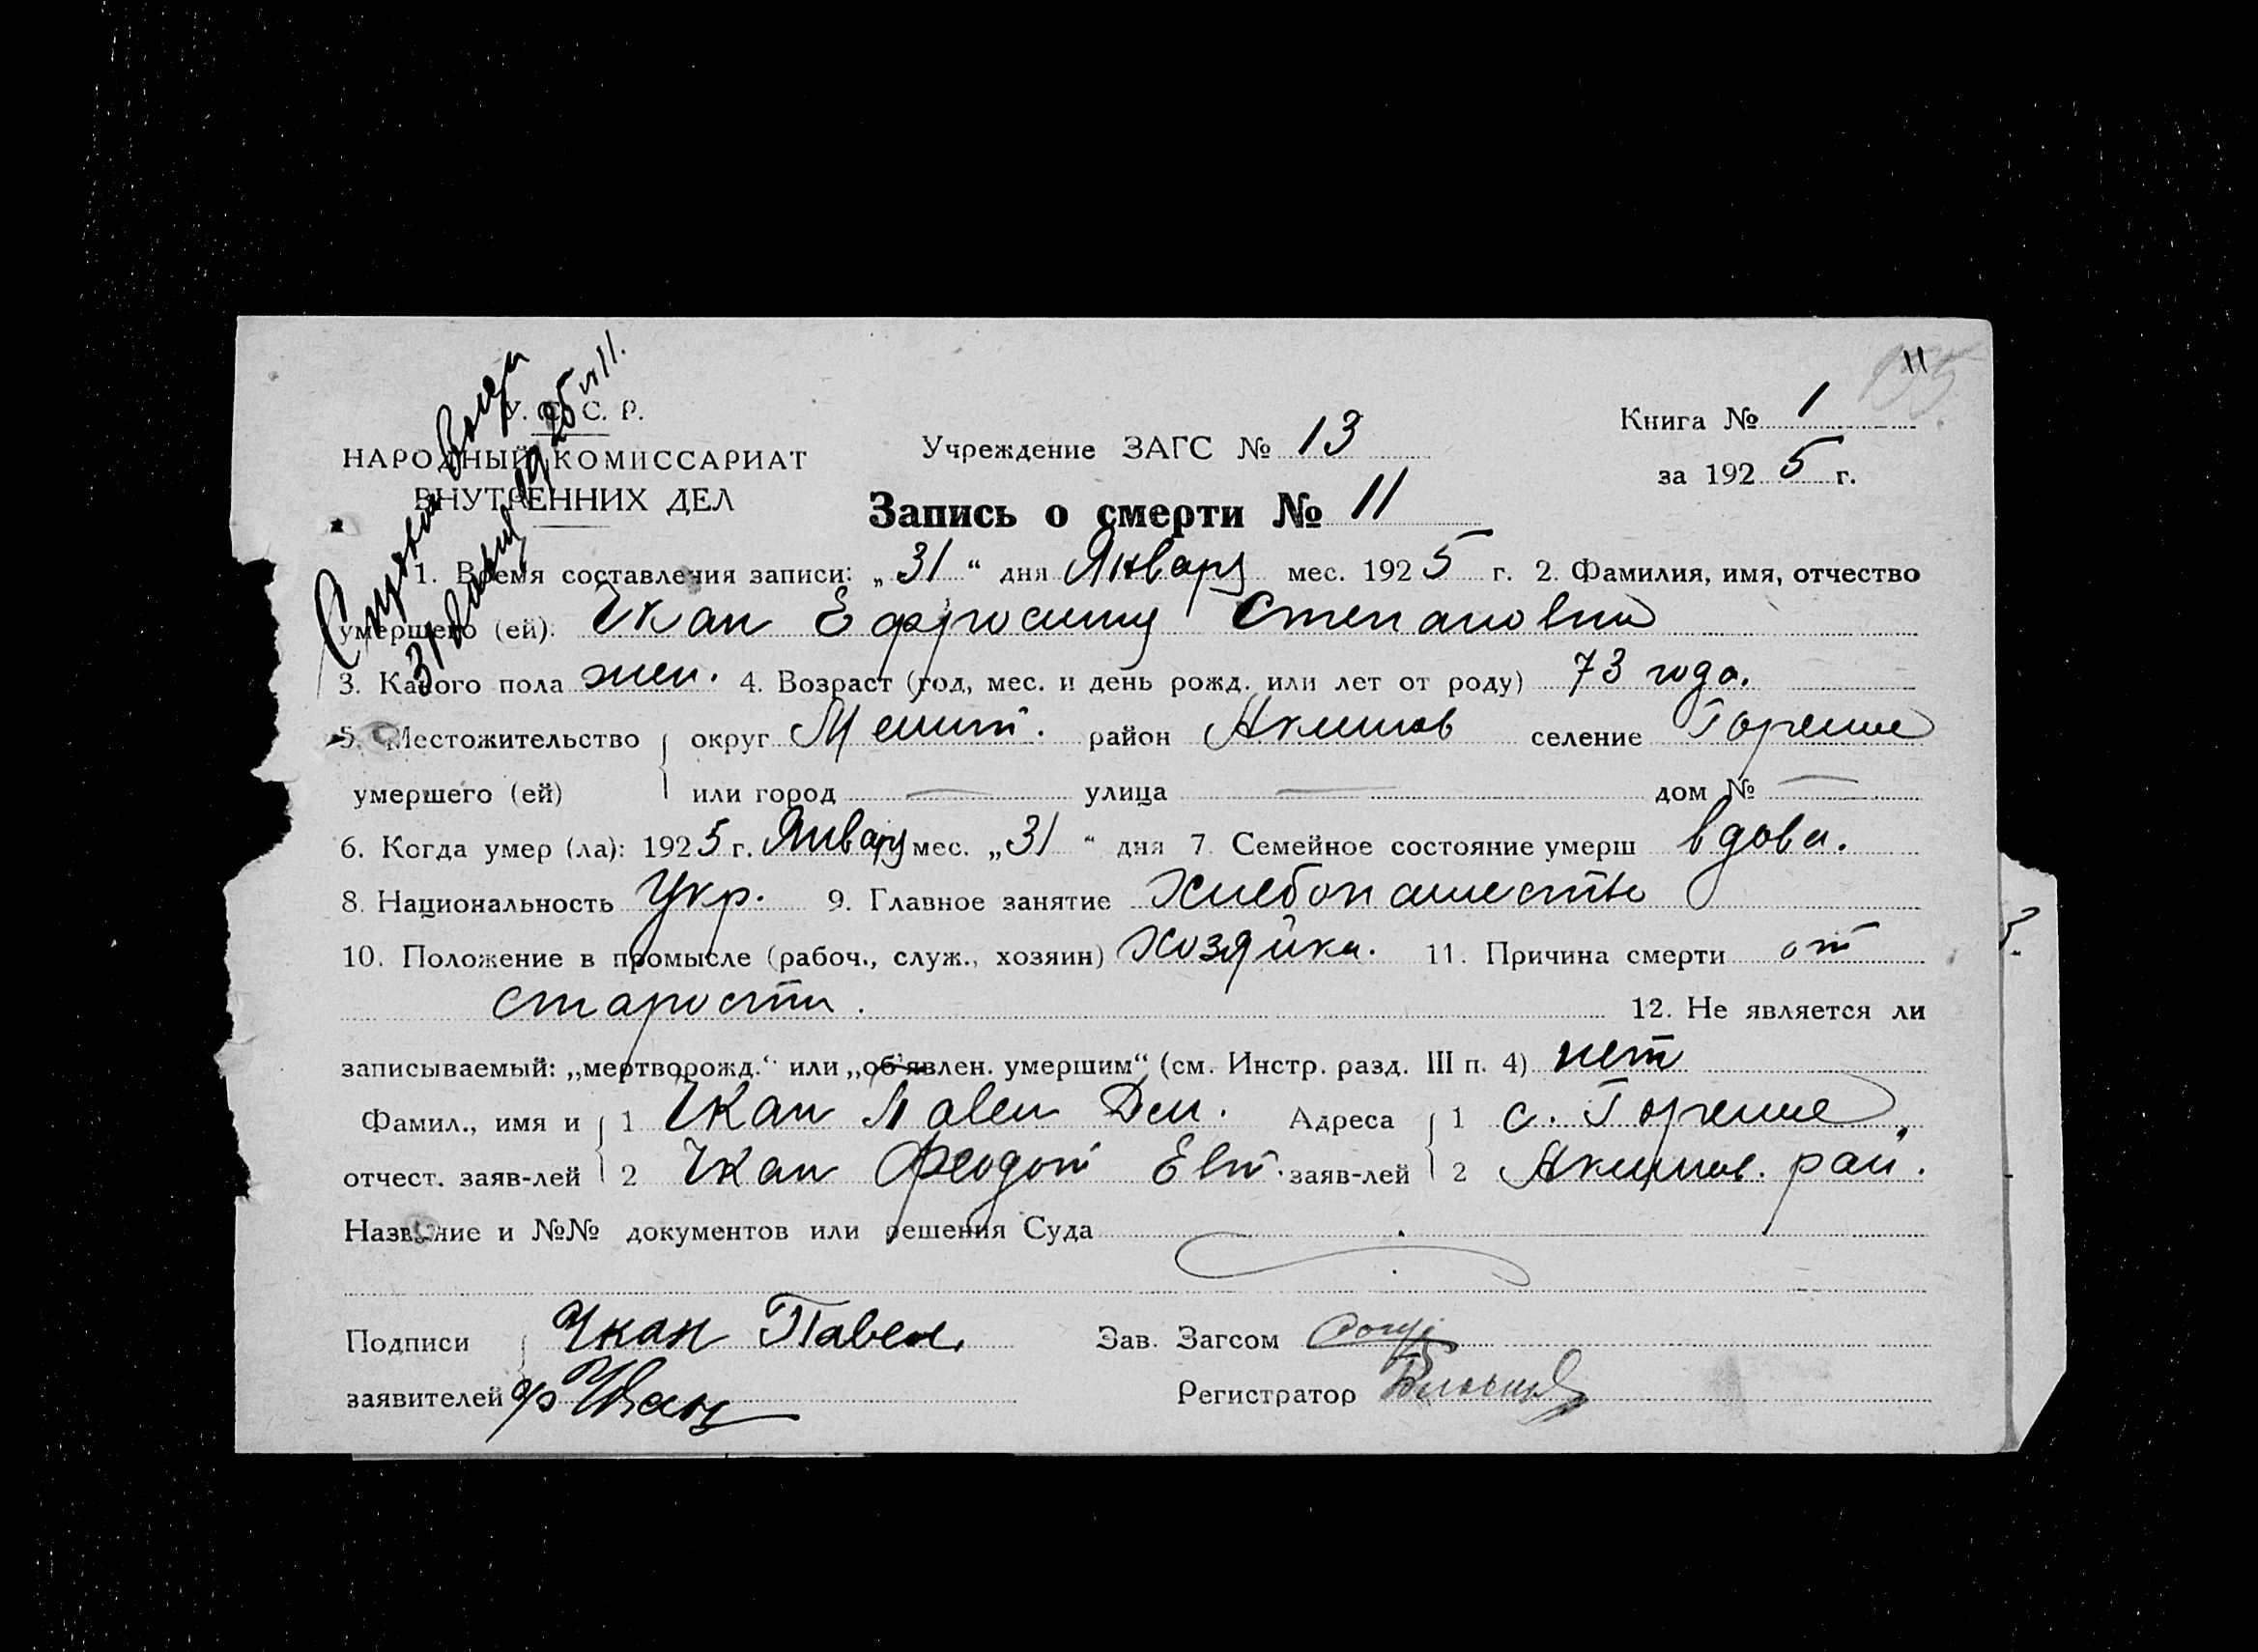 11
У. С. С. Р.
НАРОДНЫЙ КОМИССАРИАТ
ВНУТРЕННИХ ДЕЛ
Справка выдана
31 января 1925 № 11.
Учреждение ЗАГС № 13
Книга № 1
за 1925 г.
Запись о смерти № 11
1. Время составления записи: „31“ дня Января мес. 1925 г. 2. Фамилия, имя, отчество
умершего (ей). Чкан Ефросиния Степановна
3. Какого пола жен. 4. Возраст (год, мес. и день рожд. или лет от роду) 73 года.
5. Местожительство округ Мелит. район Акимов селение Горелое
умершего (ей) или город — улица — дом № —
6. Когда умер (ла): 1925 г. Января мес. „31“ дня 7. Семейное состояние умерш вдова.
8. Национальность Укр. 9. Главное занятие Хлебопашество
10. Положение в промысле (рабоч., служ., хозяин) Хозяйка. 11. Причина смерти от
старости. 12. Не является ли
записываемый: „мертворожд.“ или „об'явлен. умершим“ (см. Инстр. разд. III п. 4) нет
Фамил., имя и 1 Чкан Павел Дем. Адреса 1 с. Горелое,
отчест. заяв-лей 2 Чкан Феодот Евт. заяв-лей 2 Акимов. рай.
Название и №№ документов или решения Суда
Подписи Чкан Павел.
Зав. Загсом
заявителей Ф Чкан
Регистратор